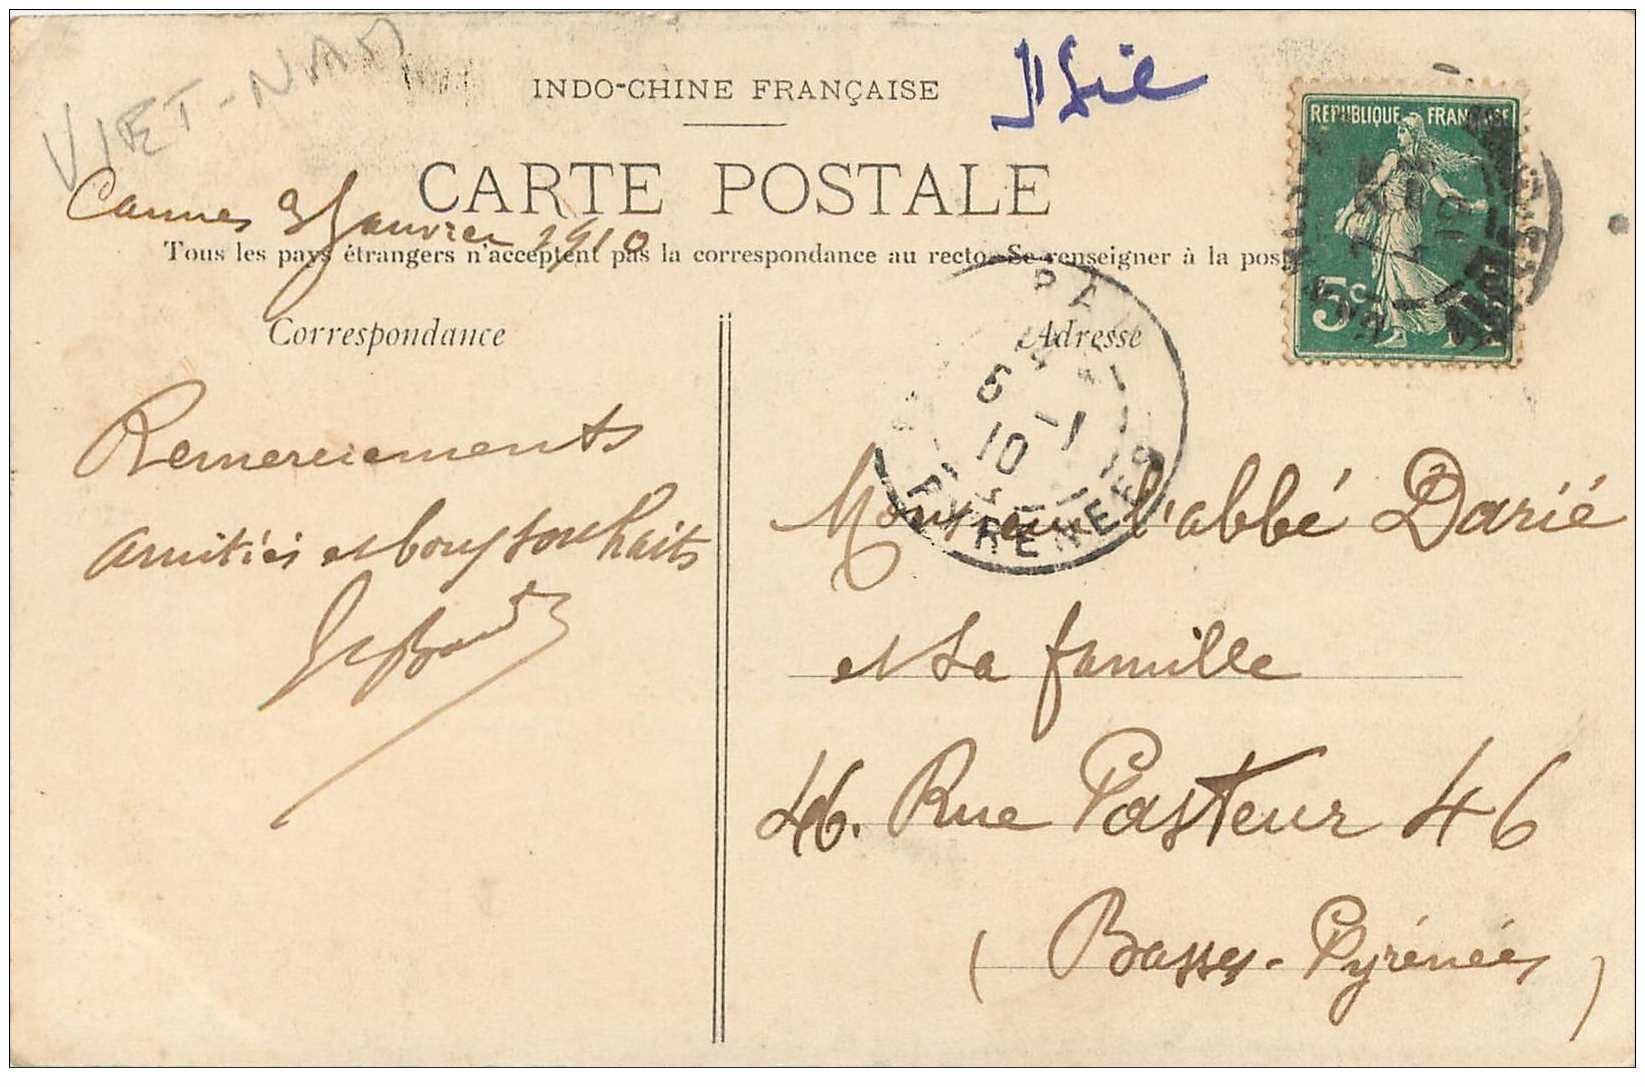 VIET-NAM
INDO-CHINE FRANÇAISE
CARTE POSTALE
Cannes 3 Janvier 1910
Tous les pays étrangers n'acceptent pas la correspondance au recto. Se renseigner à la pos
REPUBLIQUE FRANÇAISE
5c
Correspondance
Adresse
PAU
6 -1
10
PYRENEES
Remerciements
amitiés et bons souhaits
Monsieur l'abbé Darié
et sa famille
46. Rue Pasteur 46
(Basses-Pyrénées)